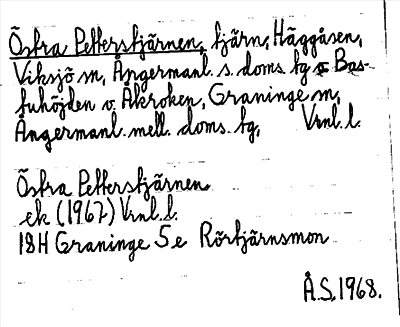 Östra Petterstjärnen, tjärn, Häggåsen,
Viksjö sn, Ångermanl. s. doms. tg o Bas-
tuhöjden o. Åkroken, Graninge sn,
Ångermanl. mell. doms. tg, Vrnl. l.
Östra Petterstjärnen
ek (1967) Vrnl. l.
18H Graninge 5e Rörtjärnsmon
Å.S. 1968.